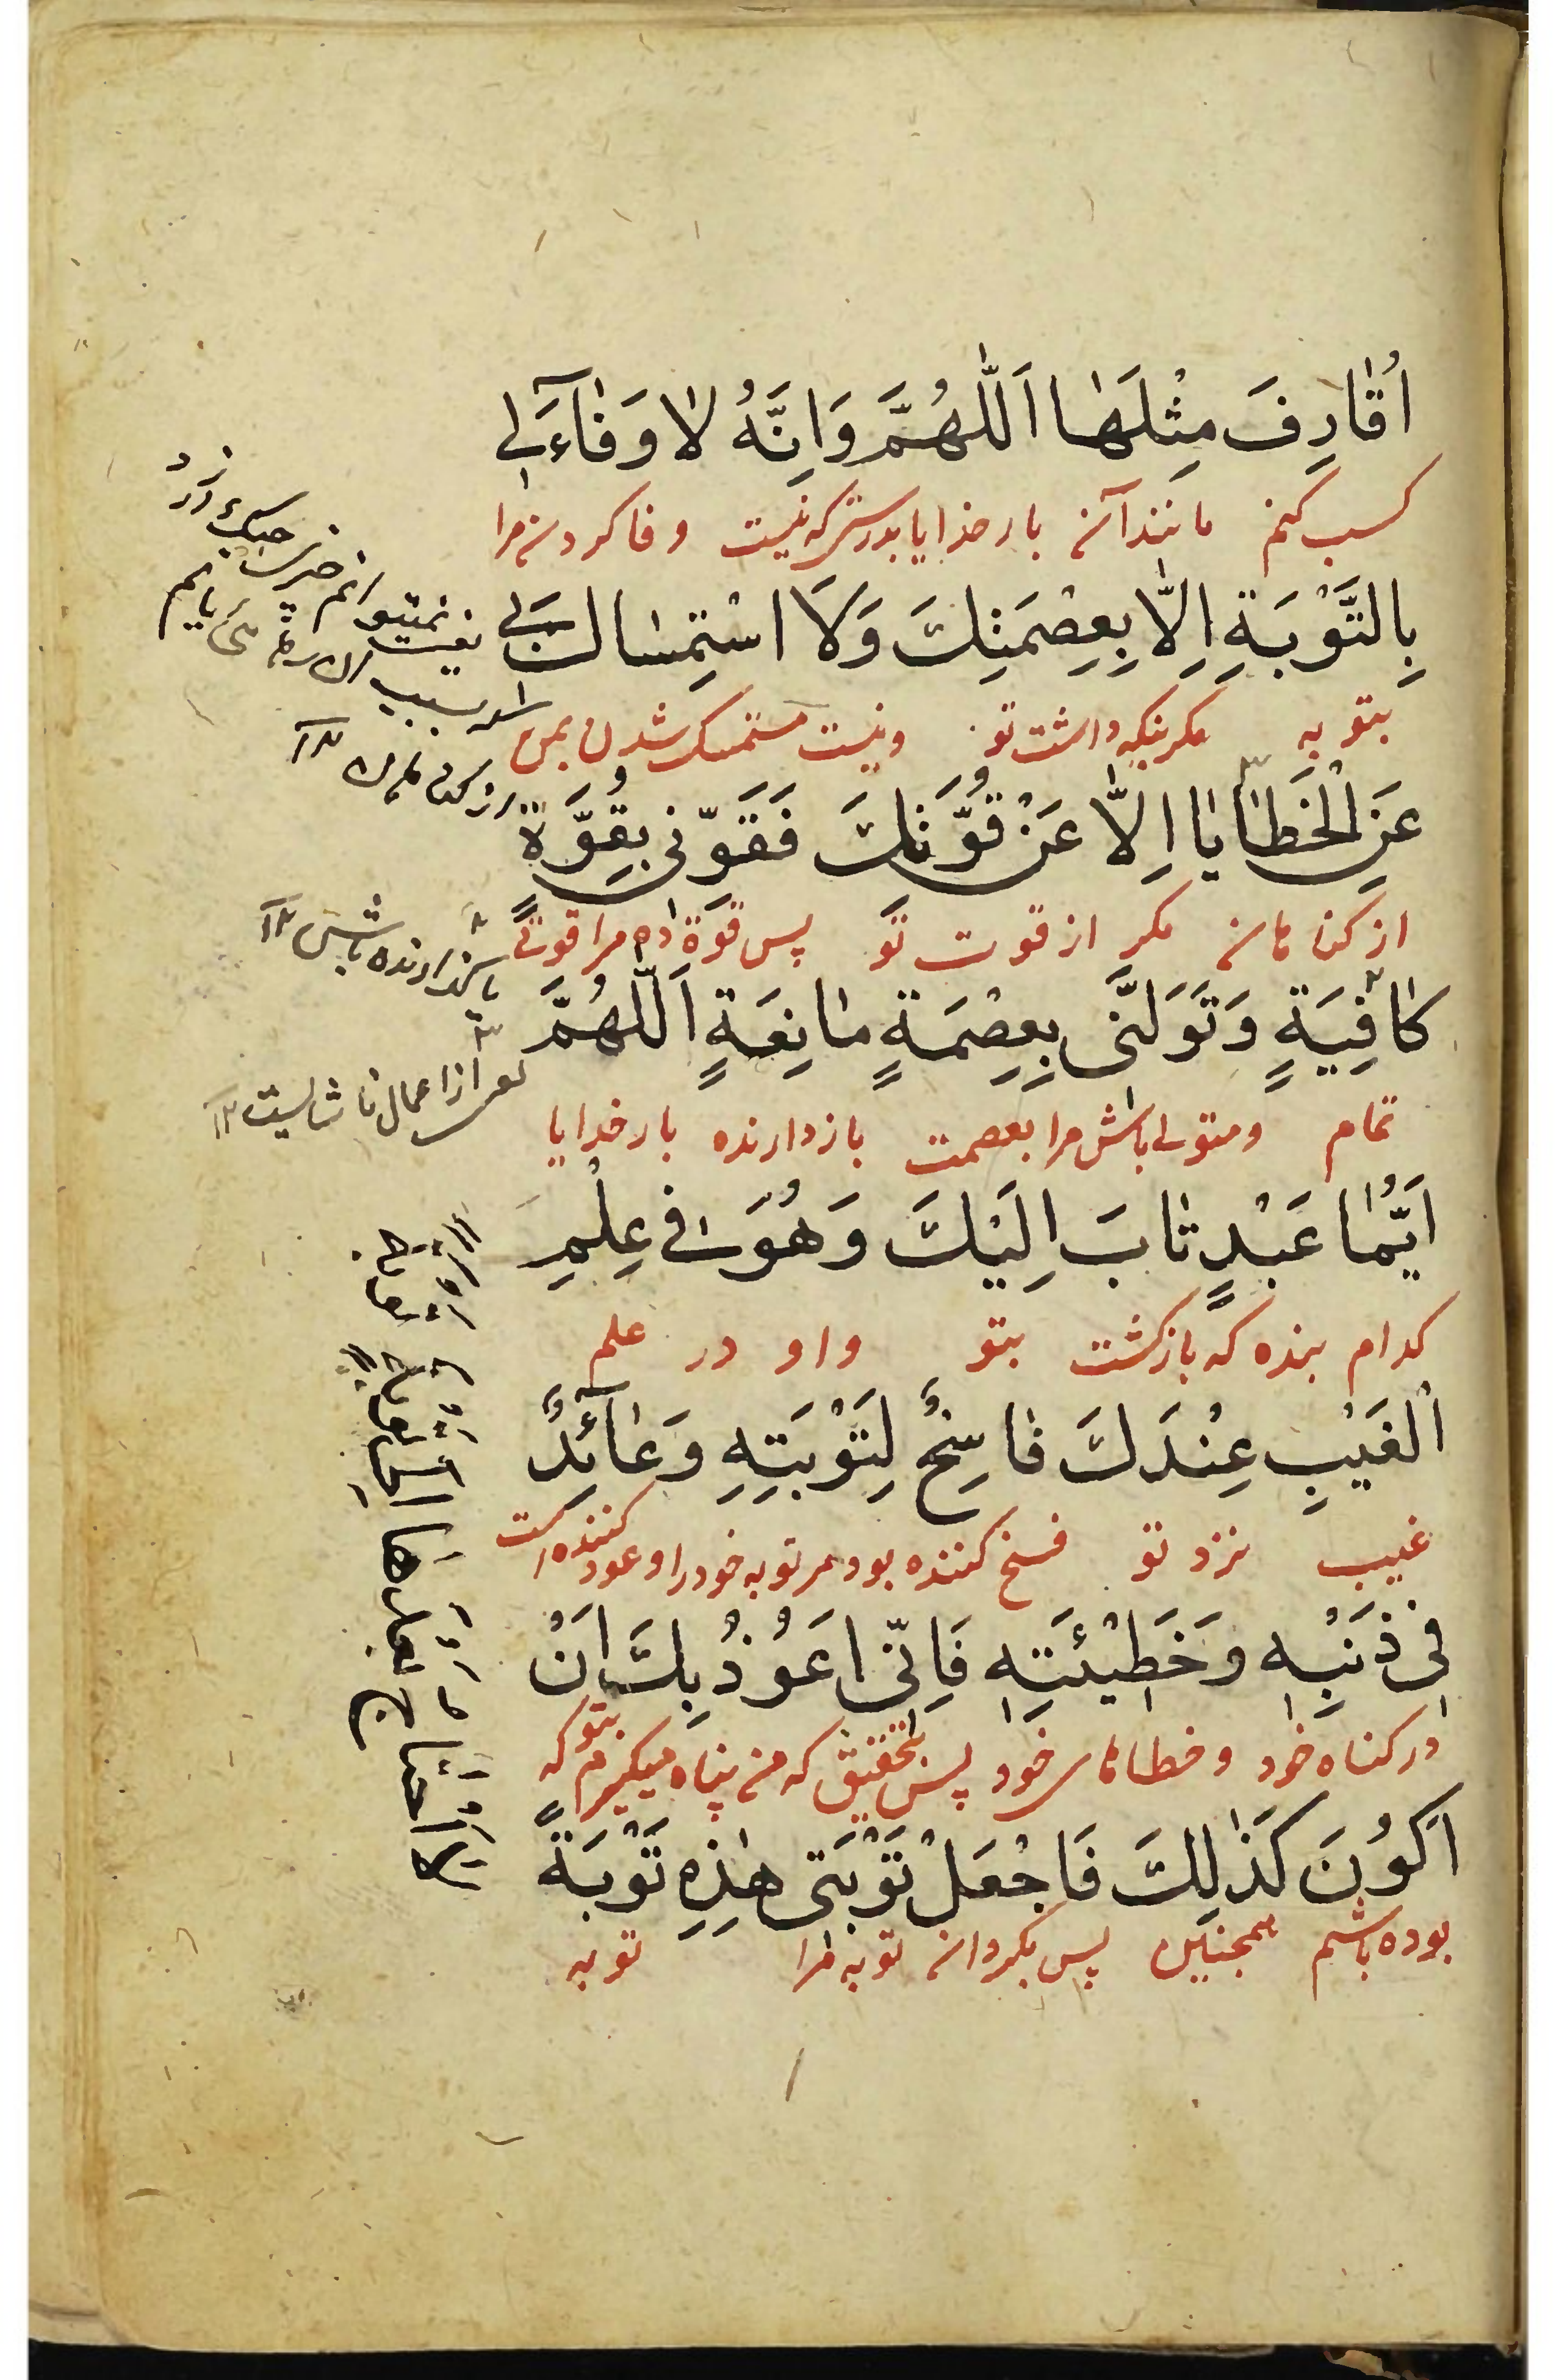 اُقٰارِفَ مِثْلَهٰا اَللّٰهُمَّ وَاِنَّهُ لٰا وَفٰآءَ لِی
کسب کنم مانند آن بار خدایا بدرستی که نیست وفا کردن مرا
بِالتَّوْبَةِ اِلّٰا بِعِصْمَتِكَ وَلَا اسْتِمْسٰاكَ بٖی
بتوبه مکر بنکه داشت تو و نیست متمسک شدن بمن
عَنِ الْخَطٰایٰا اِلّٰا عَنْ قُوَّتِكَ فَقَوِّنٖی بِقُوَّةٍ
از کناهان مکر از قوت تو پس قوة ده مرا قوتی
کٰافِیَةٍ وَتَوَلَّنٖی بِعِصْمَةٍ مٰانِعَةٍ اَللّٰهُمَّ
تمام و متولی باش مرا بعصمت باز دارنده بار خدایا
اَیُّمٰا عَبْدٍ تٰابَ اِلَیْكَ وَهُوَ فٖی عِلْمِ
کدام بنده که بازکشت بتو و او در علم
الْغَیْبِ عِنْدَكَ فٰاسِخٌ لِتَوْبَتِهٖ وَعٰآئِدٌ
غیب نزد تو فسخ کننده بود مر توبه خود را و عود کننده است
فٖی ذَنْبِهٖ وَخَطٖیْئَتِهٖ فَاِنّٖی اَعُوْذُ بِكَ اَنْ
در کناه خود و خطاهای خود پس بتحقیق که من پناه میکیرم بتو که
اَکُوْنَ کَذٰلِكَ فَاجْعَلْ تَوْبَتٖی هٰذِهٖ تَوْبَةً
بوده باشم همچنین پس بکردان توبه مرا توبه
باز دارنده باش
از اعمال ناشایست
لا احتاج بعدها الی توبة